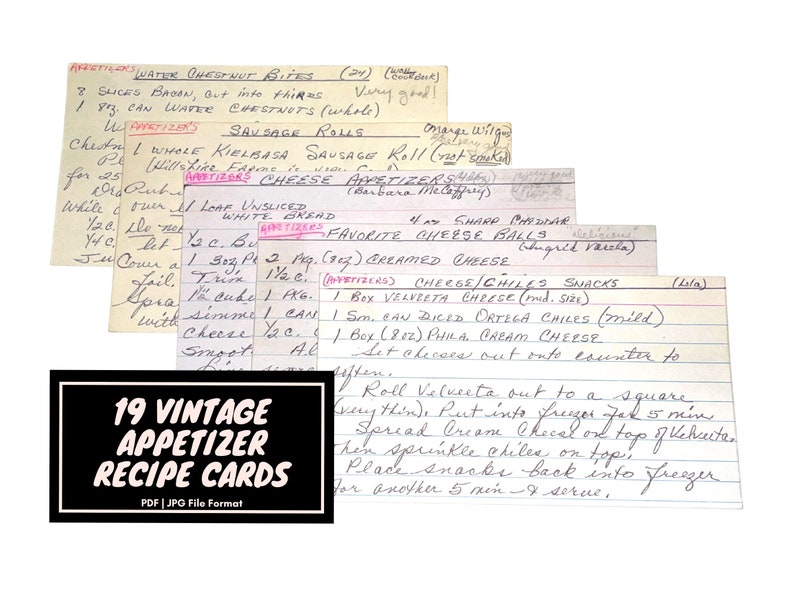 APPETIZERS WATER CHESTNUT BITES (24) (WORLD COOKBOOK)
8 SLICES BACON, cut into thirds Very good!
1 8oz. CAN WATER CHESTNUTS (whole)
chestn
for 25
Dra
while
1/2 C.
1/4 C.
APPETIZER'S SAUSAGE ROLLS Marge Wilgos
1 WHOLE KIELBASA SAUSAGE ROLL (not smoked)
(Hillshire Farms is very
Put
over
Do not
let
Cover a
foil.
Spra
with
APPETIZERS CHEESE APPETIZERS
(Barbara McCaffrey)
1 LOAF UNSLICED 4 oz SHARP CHEDDAR
WHITE BREAD
1/2 C. Bu
1 3oz P
Trim
1 1/2 cube
simme
cheese
smoot
APPETIZERS FAVORITE CHEESE BALLS "delicious"
(Ingrid Varela)
2 PKG. (8oz) CREAMED CHEESE
1 1/2 C.
1 PKG.
1 CAN
1/2 C.
(APPETIZERS) CHEESE/CHILES SNACKS (Lila)
1 BOX VELVEETA CHEESE (MED. SIZE)
1 Sm. CAN DICED ORTEGA CHILES (mild)
1 BOX (8oz) PHILA. CREAM CHEESE
Set cheeses out onto counter to
soften.
Roll Velveeta out to a square
(very thin). Put into freezer for 5 min
Spread Cream Cheese on top of Velveeta.
Then sprinkle chiles on top.
Place snacks back into freezer
for another 5 min & serve.
19 VINTAGE
APPETIZER
RECIPE CARDS
PDF | JPG File Format